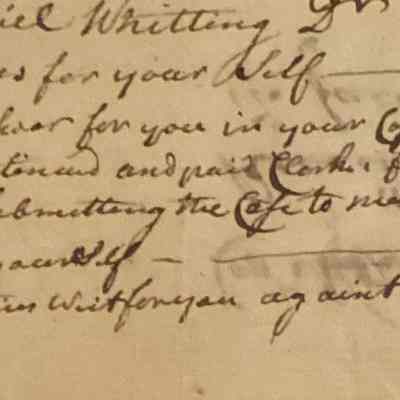 iel Whitting Dr
es for your Self
for you in your
and paid Clerks f
ubmitting the Case to me
yourself
writ for you against